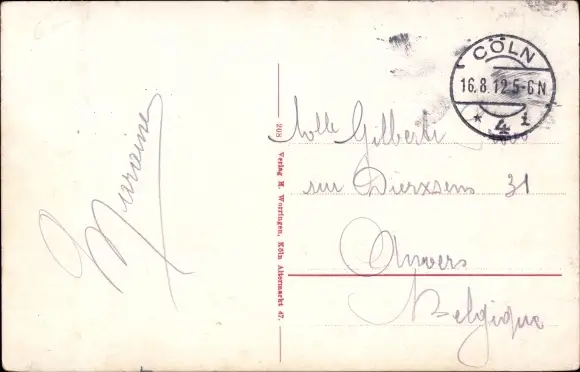 CÖLN
16.8.12 5-6N
* 4 i
Melle Gilberte
rue Dierxsens 31
Anvers
Belgique
208 Verlag H. Worringen, Köln Altermarkt 47.